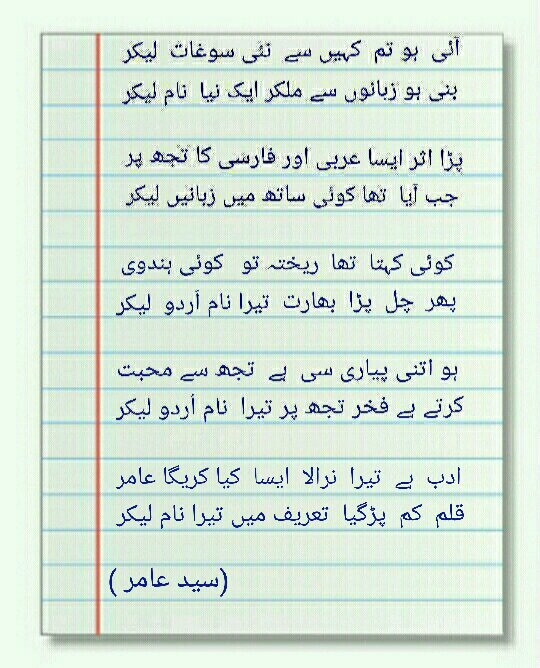 آئی ہو تم کہیں سے نئی سوغات لیکر
بنی ہو زبانوں سے ملکر ایک نیا نام لیکر
پڑا اثر ایسا عربی اور فارسی کا تجھ پر
جب آیا تھا کوئی ساتھ میں زبانیں لیکر
کوئی کہتا تھا ریختہ تو کوئی ہندوی
پھر چل پڑا بھارت تیرا نام اُردو لیکر
ہو اتنی پیاری سی ہے تجھ سے محبت
کرتے ہے فخر تجھ پر تیرا نام اُردو لیکر
ادب ہے تیرا نرالا ایسا کیا کریگا عامر
قلم کم پڑگیا تعریف میں تیرا نام لیکر
(سید عامر)